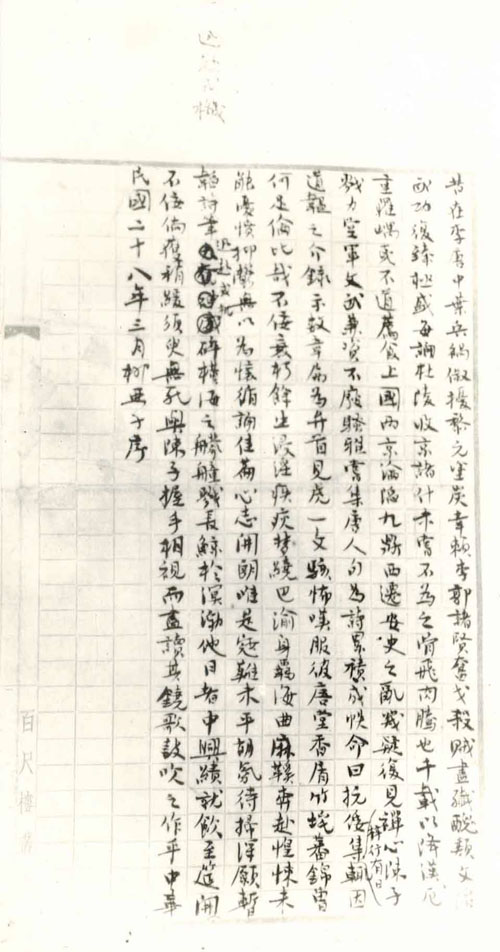 迅赴戎機
昔在李唐中葉兵禍俶擾黎元塗炭幸賴李郭諸賢奮戈殺賊盡殲醜類文治
武功復臻極盛每誦杜陵收京諸什未嘗不為之眉飛肉騰也千載以降漢厄
重羅夷不道薦食上國兩京淪陷九鼎西遷安史之亂幾疑復見禪心陳子
戮力空軍文武兼資不廢騷雅嘗集唐人句為詩累積成帙命曰抗倭集輒因
付有日
道之介錄示數章屬為弁首見虎一文駭怖嘆服彼唐堂香屑竹垞蕃錦曾
何足倫比哉不佞衰朽餘生浸淫疾疢夢繞巴渝身羈海曲麻鞵奔赴惶悚未
能憂憤抑鬱無以為懷循誦佳篇心志開朗唯是寇難未平胡氛待掃深願暫
輟詩筆迅赴戎機碎橫海之艨艟戮長鯨於溟渤他日者中興績就飲至筵開
不佞倘稍緩須臾無死與陳子握手相視而盡讀其鐃歌鼓吹之作乎中華
民國二十八年三月柳亞子序
百尺樓